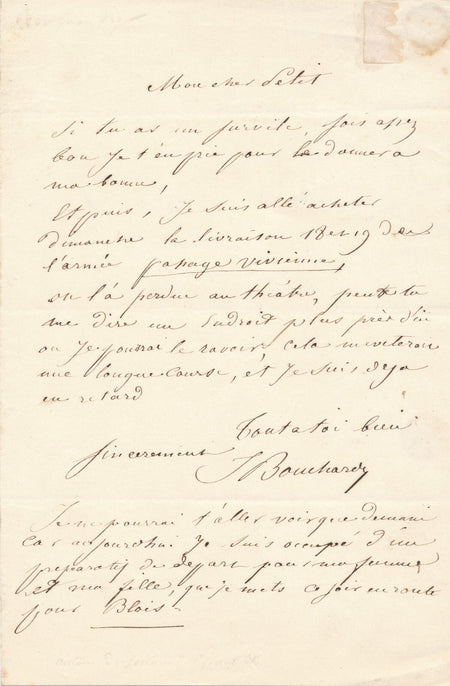 Mon cher Petit
Si tu as un survite, sois assez
bon je t'en prie pour le donner a
ma bonne,
Et puis, je suis allé acheter
dimanche la livraison 18 et 19 de
l'armée passage vivienne,
on l'a perdue au théatre, peut tu
me dire un Endroit plus près d'ici
ou je pourrai le ravoir, cela m'viteron
une longue course, et je suis deja
en retard
Tout a toi bien
sincerement
J Bouchardy
Je ne pourrai t'aller voir que demain
car aujourdhui je suis occupé d'un
preparatif de depart pour ma femme
et ma fille, que je mets ce soir en route
pour Blois